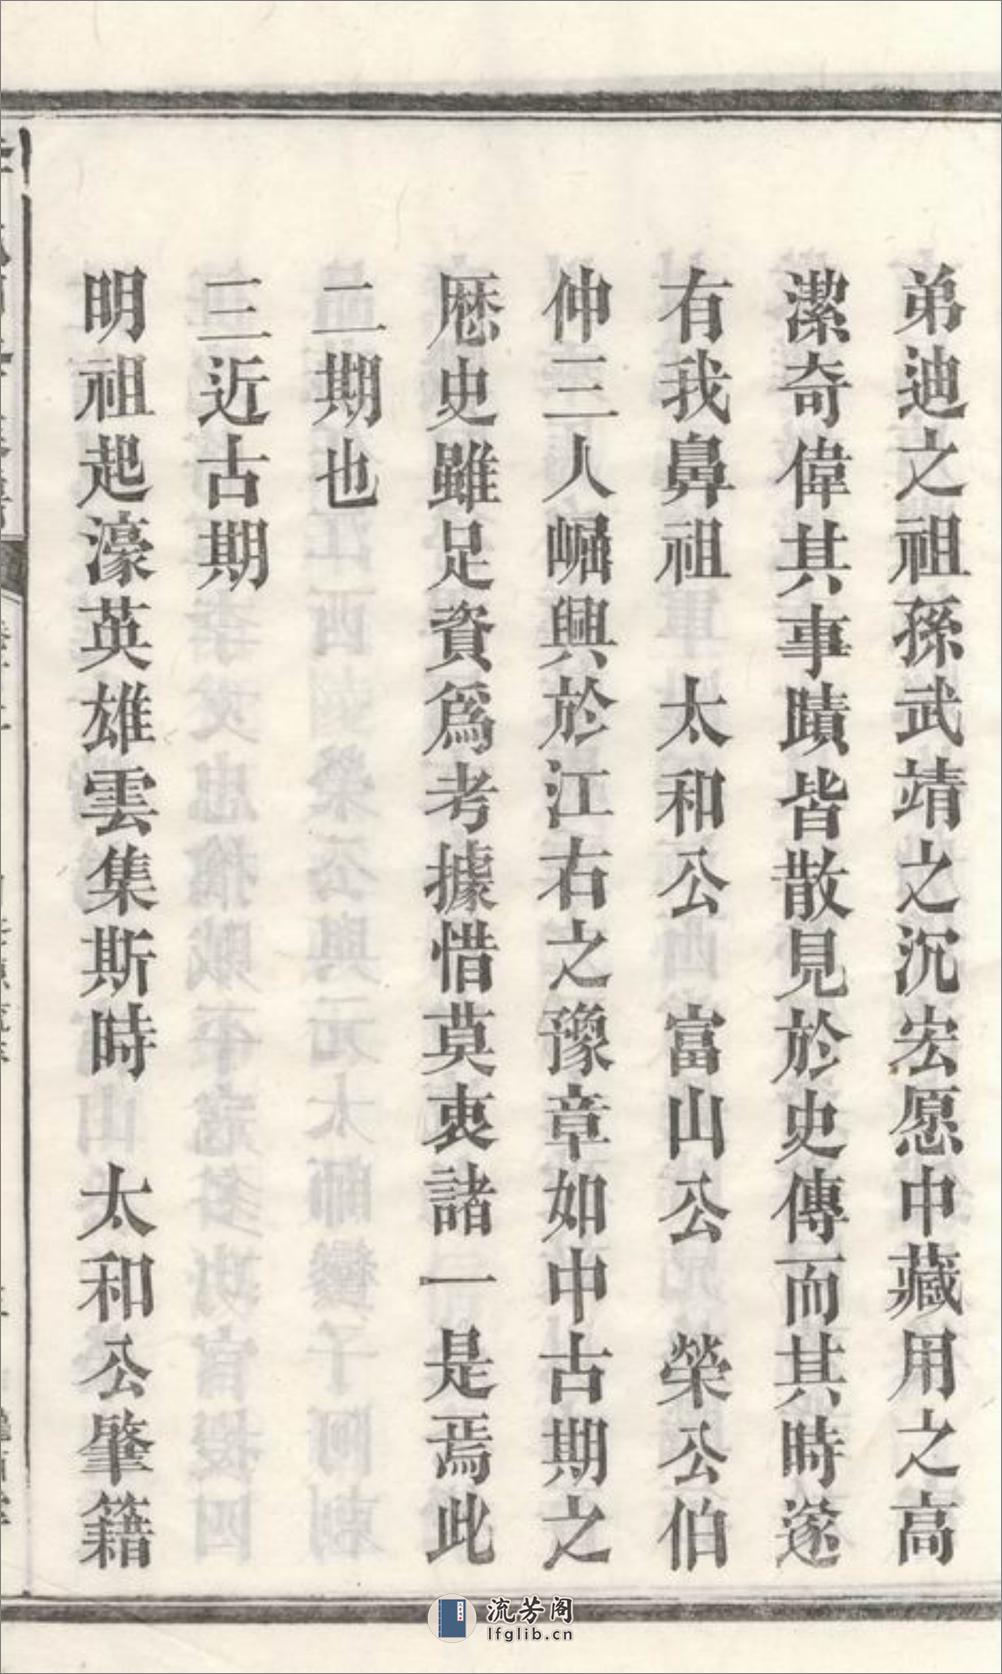 弟迪之祖孫武靖之沉宏愿中藏用之高
潔奇偉其事蹟皆散見於史傳而其時遂
有我鼻祖　太和公　富山公　榮公伯
仲三人崛興於江右之豫章如中古期之
厯史雖足資爲考據惜莫衷諸一是焉此
二期也
三近古期
明祖起濠英雄雲集斯時　太和公肇籍
流芳阁
lfglib.cn